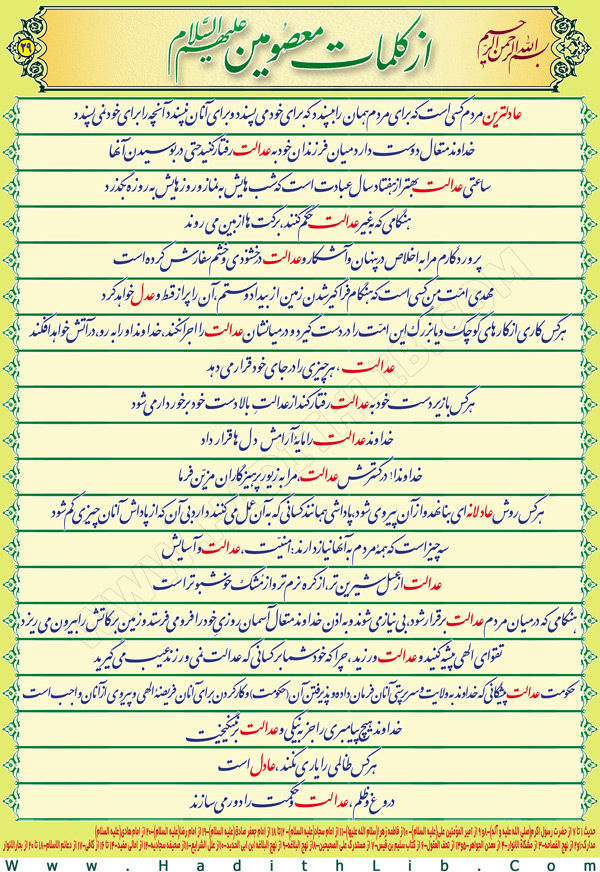 بسم الله الرحمن الرحیم
از کلمات معصومین علیهم السلام
۳۹
عادلترین مردم کسی است که برای مردم همان را بپسندد که برای خود می پسندد و برای آنان نپسندد آنچه را برای خود نمی پسندد
خداوند متعال دوست دارد میان فرزندان خود به عدالت رفتار کنید حتی در بوسیدن آنها
ساعتی عدالت بهتر از هفتاد سال عبادت است که شب هایش به نماز و روزهایش به روزه بگذرد
هنگامی که به غیر عدالت حکم کنند، برکت ها از بین می روند
پروردگارم مرا به اخلاص در پنهان و آشکار و عدالت در خشنودی و خشم سفارش کرده است
مهدی امت من کسی است که هنگام فراگیر شدن زمین از بیداد و ستم، آن را پر از قسط و عدل خواهد کرد
هر کس کاری از کارهای کوچک و یا بزرگ این امت را در دست گیرد و در میانشان عدالت را اجرا نکند، خداوند او را به رو، در آتش خواهد افکند
عدالت ، هر چیزی را در جای خود قرار می دهد
هر کس با زیردست خود به عدالت رفتار کند از عدالت بالا دست خود برخوردار می شود
خداوند عدالت را مایۀ آرامش دل ها قرار داد
خداوندا؛ در گسترش عدالت، مرا به زیور پرهیزگاران مزین فرما
هر کس روش عادلانه ای بنا نهد و از آن پیروی شود، پاداشی همانند کسانی که به آن عمل می کنند دارد بی آن که از پاداش آنان چیزی کم شود
سه چیز است که همۀ مردم به آنها نیاز دارند: امنیت، عدالت و آسایش
عدالت از عسل شیرین تر، از کره نرم تر و از مشک خوشبو تر است
هنگامی که در میان مردم عدالت برقرار شود، بی نیاز می شوند و به اذن خداوند متعال آسمان روزی خود را فرو می فرستد و زمین برکاتش را بیرون می ریزد
تقوای الهی پیشه کنید و عدالت ورزید، چرا که خود شما بر کسانی که عدالت نمی ورزند عیب می گیرید
حکومت عدالت پیشگانی که خداوند به ولایت و سرپرستی آنان فرمان داده و پذیرفتن آن (حکومت) و کار کردن برای آنان فریضۀ الهی و پیروی از آنان واجب است
خداوند هیچ پیامبری را جز به نیکی و عدالت برنینگیخت
هر کس ظالمی را یاری نکند، عادل است
دروغ و ظلم، عدالت و حکمت را دور می سازند
حدیث ۱ تا ۷ از حضرت رسول اکرم(صلی الله علیه و آله)-۸ و ۹ از امیر المؤمنین علی(علیه السلام)-۱۰ از فاطمه زهرا(سلام الله علیها)-۱۱ از امام سجاد(علیه السلام)-۱۲ تا ۱۸ از امام جعفر صادق(علیه السلام)-۱۹ از امام رضا(علیه السلام)-۲۰ از امام هادی(علیه السلام)
www.HadithLib.com